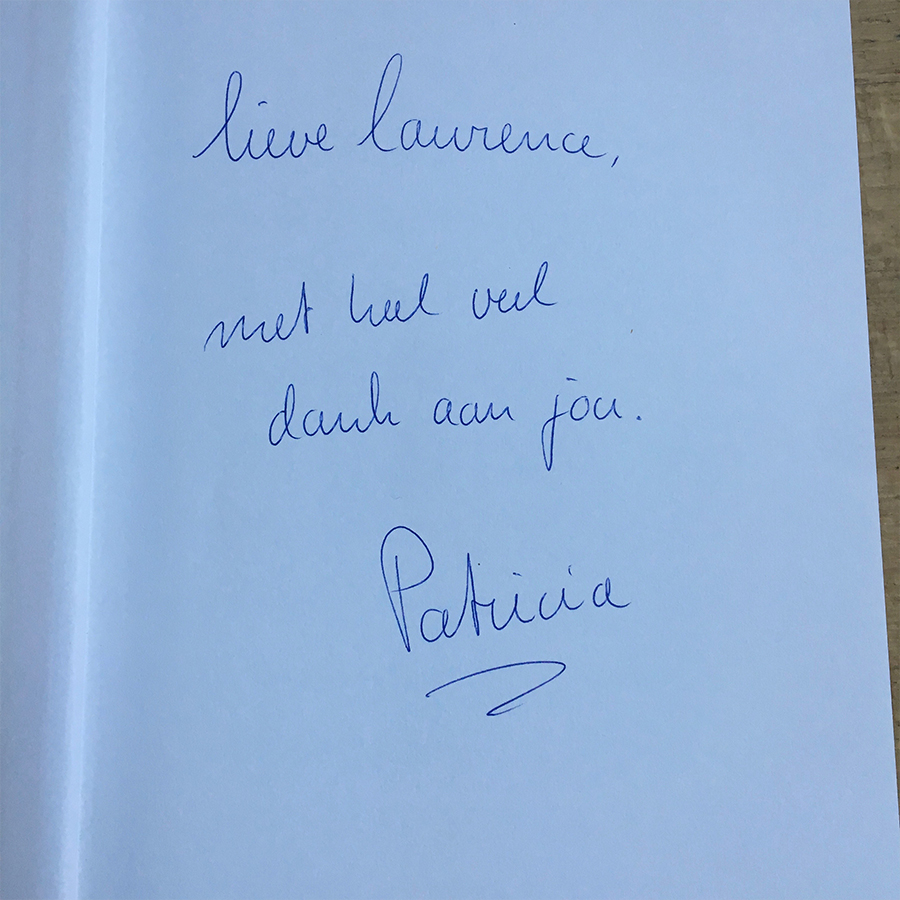 lieve laurence,
met heel veel
dank aan jou.
Patricia